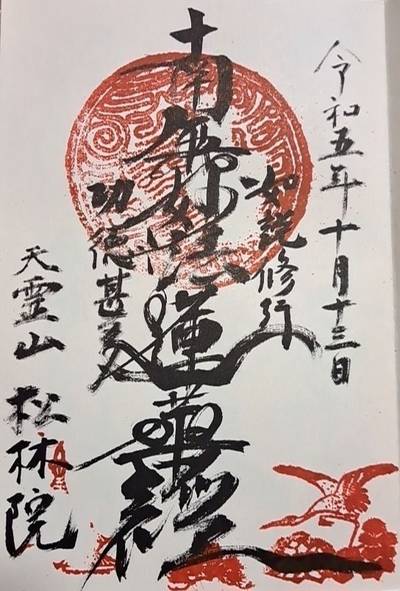 令和五年十月十三日
如説修行
南無妙法蓮華経
功徳甚多
天霊山 松林院